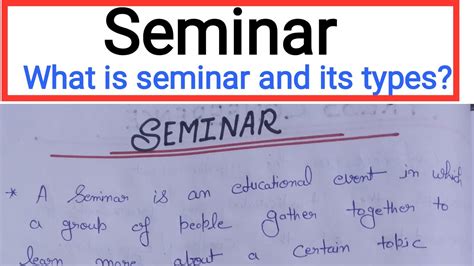 Seminar
What is seminar and its types?
SEMINAR
* A Seminar is an educational event in which
a group of people gather together to
learn more about a certain topic